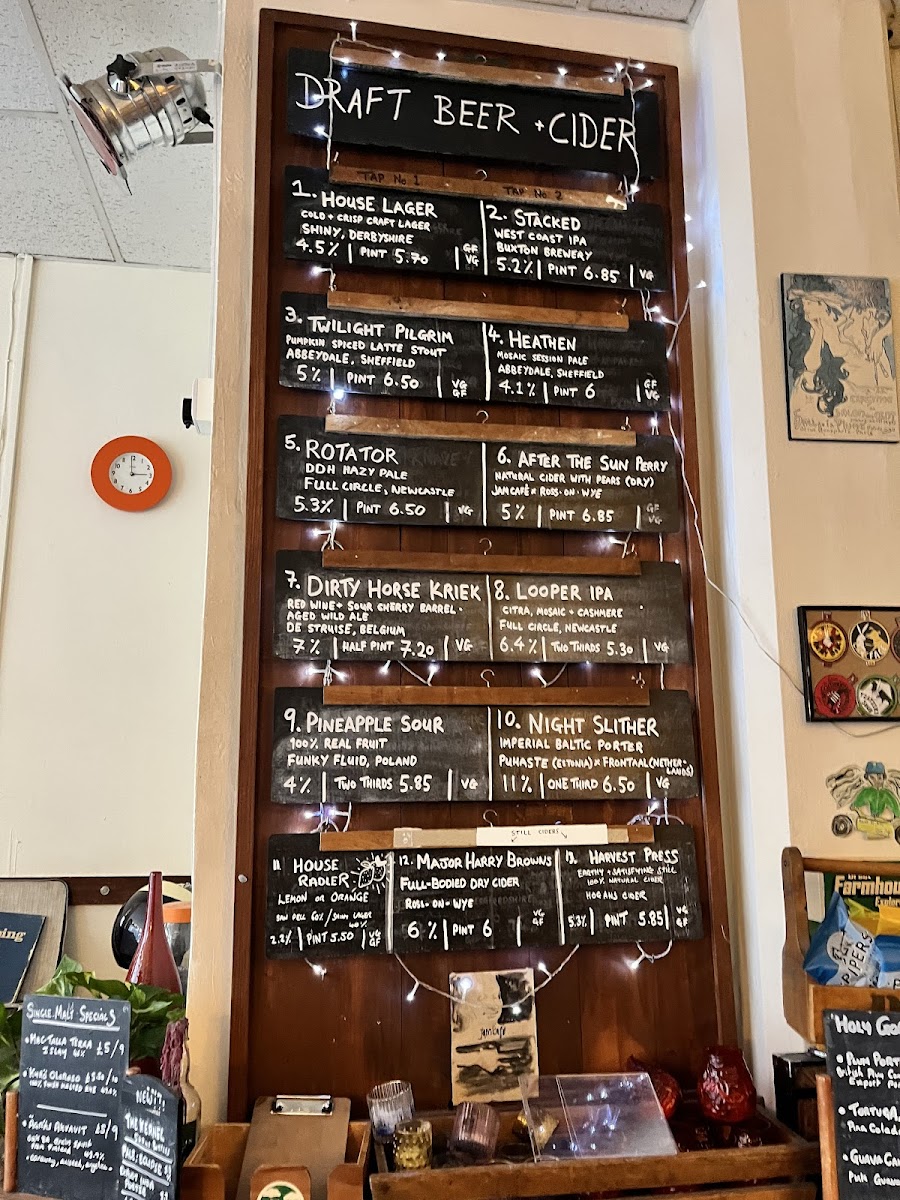 DRAFT BEER + CIDER
TAP No 1
TAP No 2
1. HOUSE LAGER
COLD + CRISP CRAFT LAGER
SHINY, DERBYSHIRE
4.5% | PINT 5.70 | GF VG
2. STACKED
WEST COAST IPA
BUXTON BREWERY
5.2% | PINT 6.85 | VG
3. TWILIGHT PILGRIM
PUMPKIN SPICED LATTE STOUT
ABBEYDALE, SHEFFIELD
5% | PINT 6.50 | VG GF
4. HEATHEN
MOSAIC SESSION PALE
ABBEYDALE, SHEFFIELD
4.1% | PINT 6 | GF VG
5. ROTATOR
DDH HAZY PALE
FULL CIRCLE, NEWCASTLE
5.3% | PINT 6.50 | VG
6. AFTER THE SUN PERRY
NATURAL CIDER WITH PEARS (DRY)
JAMCAFÉ × ROSS-ON-WYE
5% | PINT 6.85 | GF VG
7. DIRTY HORSE KRIEK
RED WINE + SOUR CHERRY BARREL-
AGED WILD ALE
DE STRUISE, BELGIUM
7% | HALF PINT 7.20 | VG
8. LOOPER IPA
CITRA, MOSAIC + CASHMERE
FULL CIRCLE, NEWCASTLE
6.4% | TWO THIRDS 5.30 | VG
9. PINEAPPLE SOUR
100% REAL FRUIT
FUNKY FLUID, POLAND
4% | TWO THIRDS 5.85 | VG
10. NIGHT SLITHER
IMPERIAL BALTIC PORTER
PUHASTE (ESTONIA) × FRONTAAL (NETHER-
LANDS)
11% | ONE THIRD 6.50 | VG
STILL CIDERS
11. HOUSE
RADLER
LEMON OR ORANGE
SAN PELL 60% / SHINY LAGER
40%
2.2% | PINT 5.50 | VG GF
12. MAJOR HARRY BROWNS
FULL-BODIED DRY CIDER
ROSS-ON-WYE
6% | PINT 6 | VG GF
13. HARVEST PRESS
EARTHY + SATISFYING STILL
100% NATURAL CIDER
HOGANS CIDER
5.3% | PINT 5.85 | VG GF
12 1 2 3 4 5 6 7 8 9 10 11
jamcafé
Farmhou
Explor
PIPERS
ing
SINGLE MALT SPECIALS
• MAC-TALLA TERRA £5/9
ISLAY 46%
£5.50/10
£5/9
FROM FINLAND
NEW!?!
THE KERNEL
PORTER
HOLY GO
• PLUM PORT
EXPORT POR
• TORTUGA
PINA COLADA
• GUAVA CA
PINK GUAVA